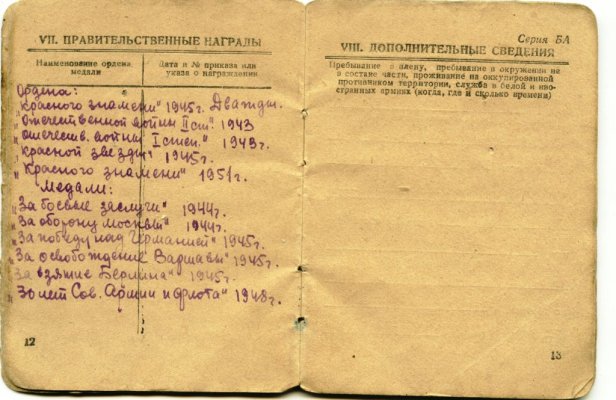 VII. ПРАВИТЕЛЬСТВЕННЫЕ НАГРАДЫ
Наименование ордена, медали
Дата и № приказа или указа о награждении
Ордена:
„Красного знамени" 1945г. Дважды.
„Отечественной войны IIст." 1943
„Отечеств. войны I степ." 1945г.
„Красной звезды" 1945г.
„Красного знамени" 1951г.
Медали:
„За боевые заслуги" 1944г.
„За оборону Москвы" 1944г.
„За победу над Германией" 1945г.
„За освобождение Варшавы" 1945г.
„За взятие Берлина" 1945г.
„30 лет Сов. Армии и флота" 1948г.
12
Серия БА
VIII. ДОПОЛНИТЕЛЬНЫЕ СВЕДЕНИЯ
Пребывание в плену, пребывание в окружении не
в составе части, проживание на оккупированной
противником территории, служба в белой и ино-
странных армиях (когда, где и сколько времени)
13